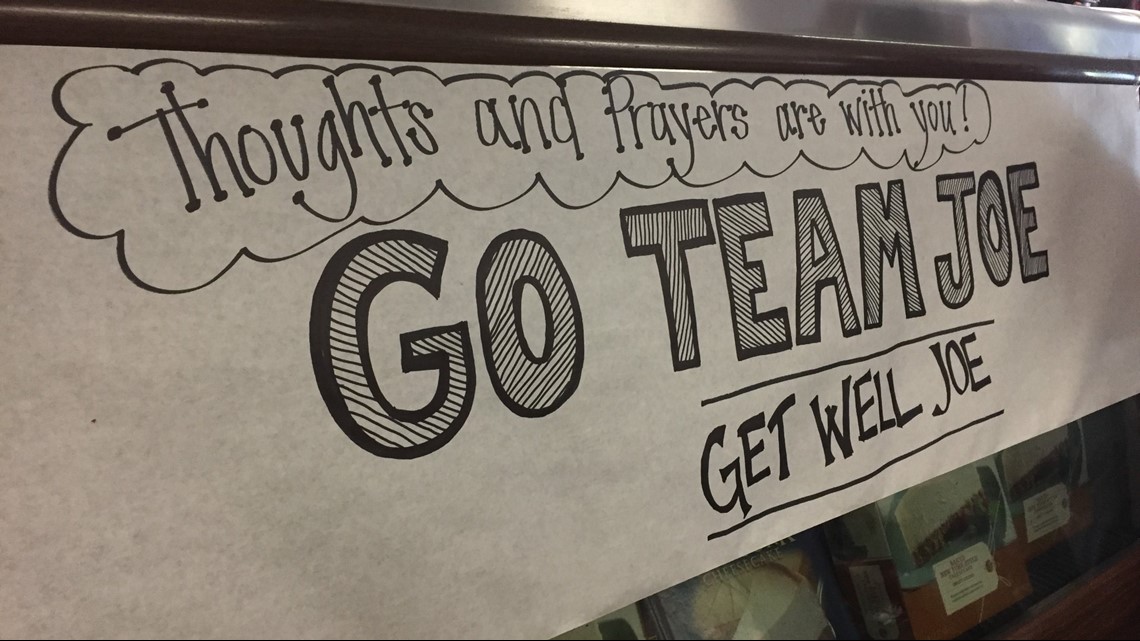 Thoughts and Prayers are with you!
GO TEAM JOE
GET WELL JOE
CHEESECAKE